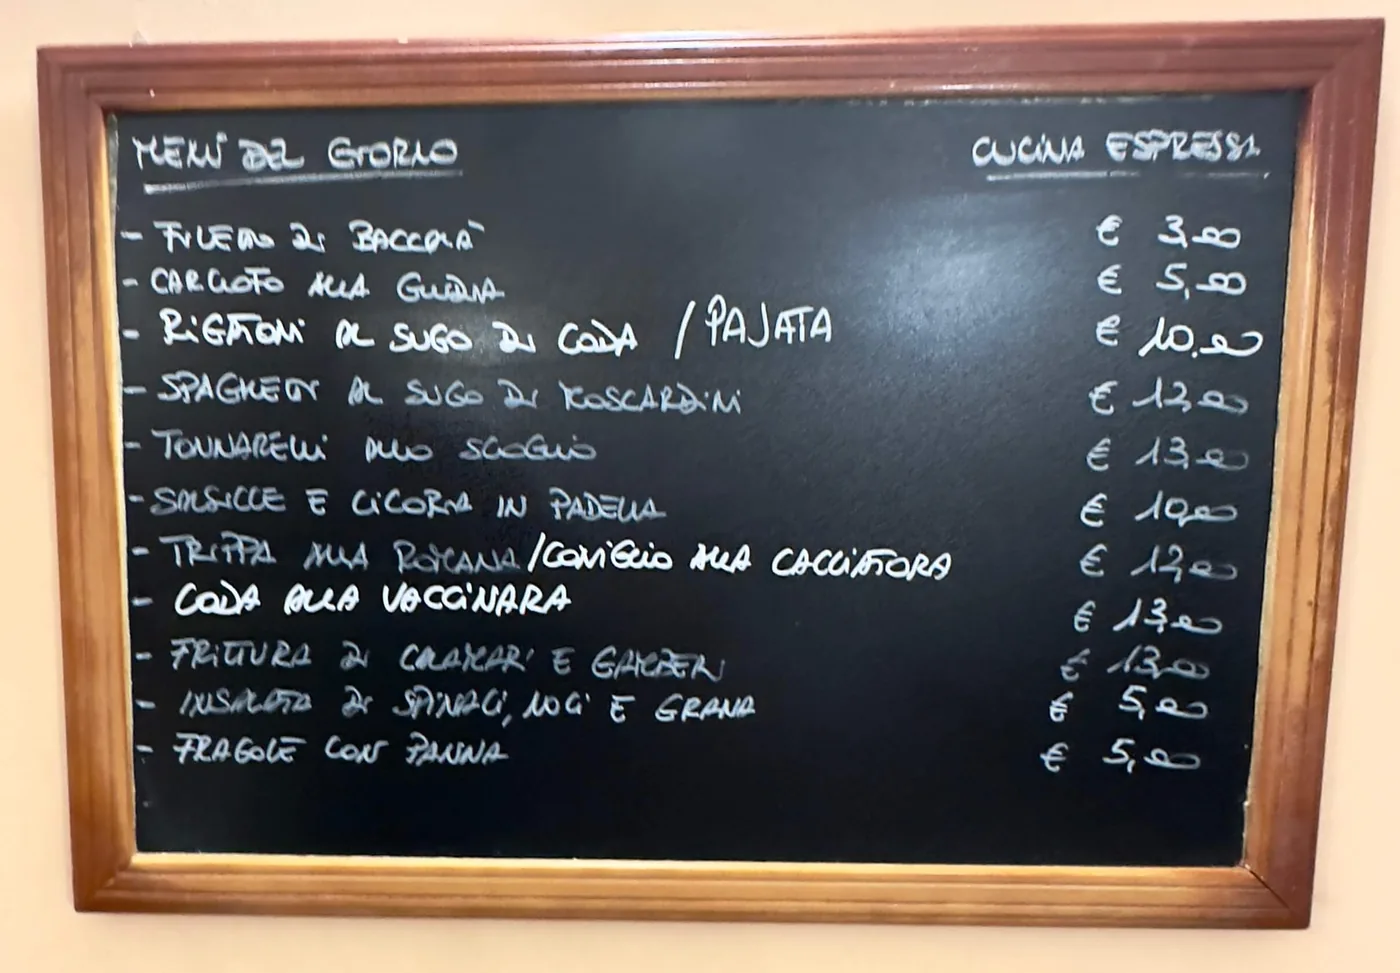 MENÙ DEL GIORNO
CUCINA ESPRESSA
- FILETTO DI BACCALÀ € 3,00
- CARCIOFO ALLA GIUDIA € 5,00
- RIGATONI AL SUGO DI CODA / PAJATA € 10,00
- SPAGHETTI AL SUGO DI MOSCARDINI € 12,00
- TONNARELLI ALLO SCOGLIO € 13,00
- SALSICCE E CICORIA IN PADELLA € 10,00
- TRIPPA ALLA ROMANA / CONIGLIO ALLA CACCIATORA € 12,00
- CODA ALLA VACCINARA € 13,00
- FRITTURA DI CALAMARI E GAMBERI € 13,00
- INSALATA DI SPINACI, NOCI E GRANA € 5,00
- FRAGOLE CON PANNA € 5,00